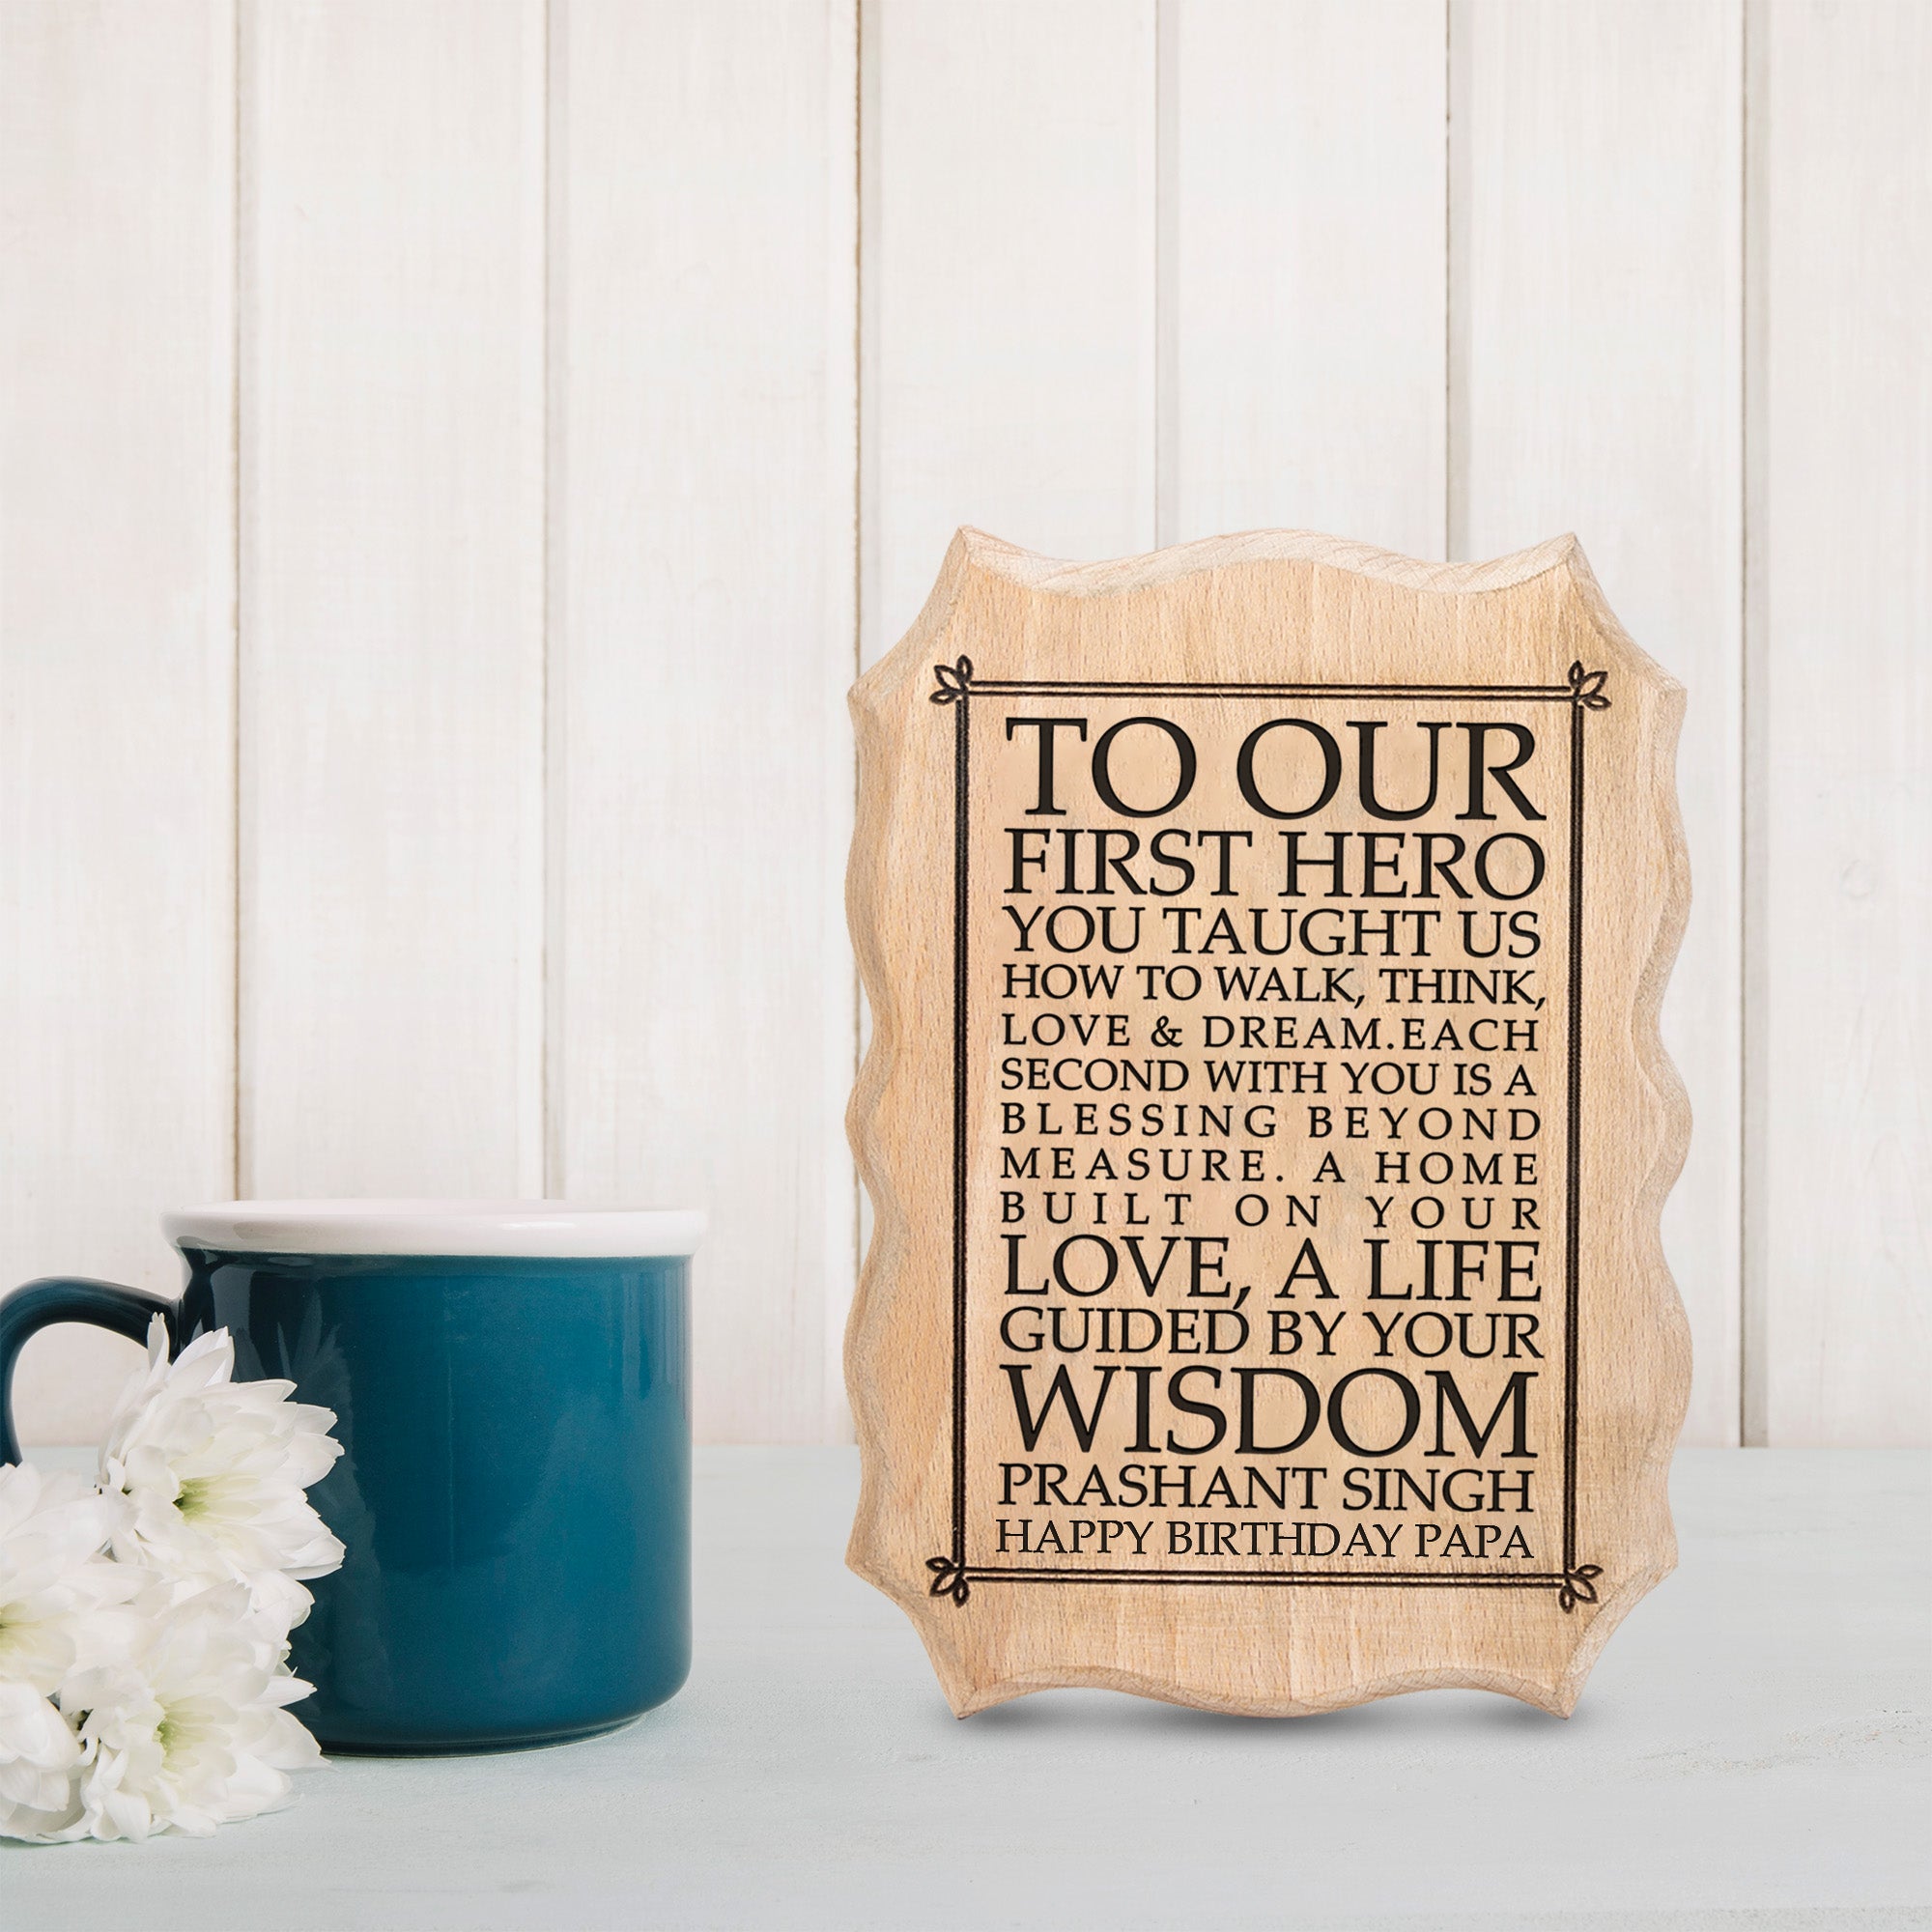 TO OUR
FIRST HERO
YOU TAUGHT US
HOW TO WALK, THINK,
LOVE & DREAM.EACH
SECOND WITH YOU IS A
BLESSING BEYOND
MEASURE. A HOME
BUILT ON YOUR
LOVE, A LIFE
GUIDED BY YOUR
WISDOM
PRASHANT SINGH
HAPPY BIRTHDAY PAPA